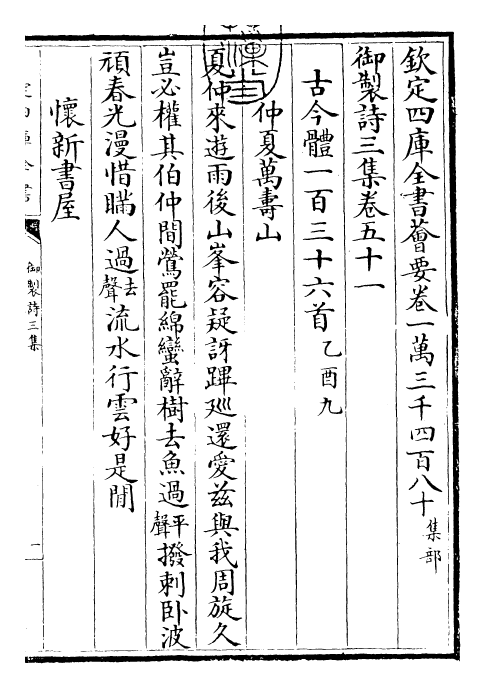 欽定四庫全書薈要卷一萬三千四百八十 集部
御製詩三集卷五十一
古今體一百三十六首 乙酉九
仲夏萬壽山
夏仲來遊雨後山峯容疑訝蹕廵還愛兹與我周旋久
豈必權其伯仲間鶯罷綿蠻辭樹去魚過平聲撥刺臥波
頑春光漫惜瞞人過去聲流水行雲好是閒
懷新書屋
御製詩三集
一